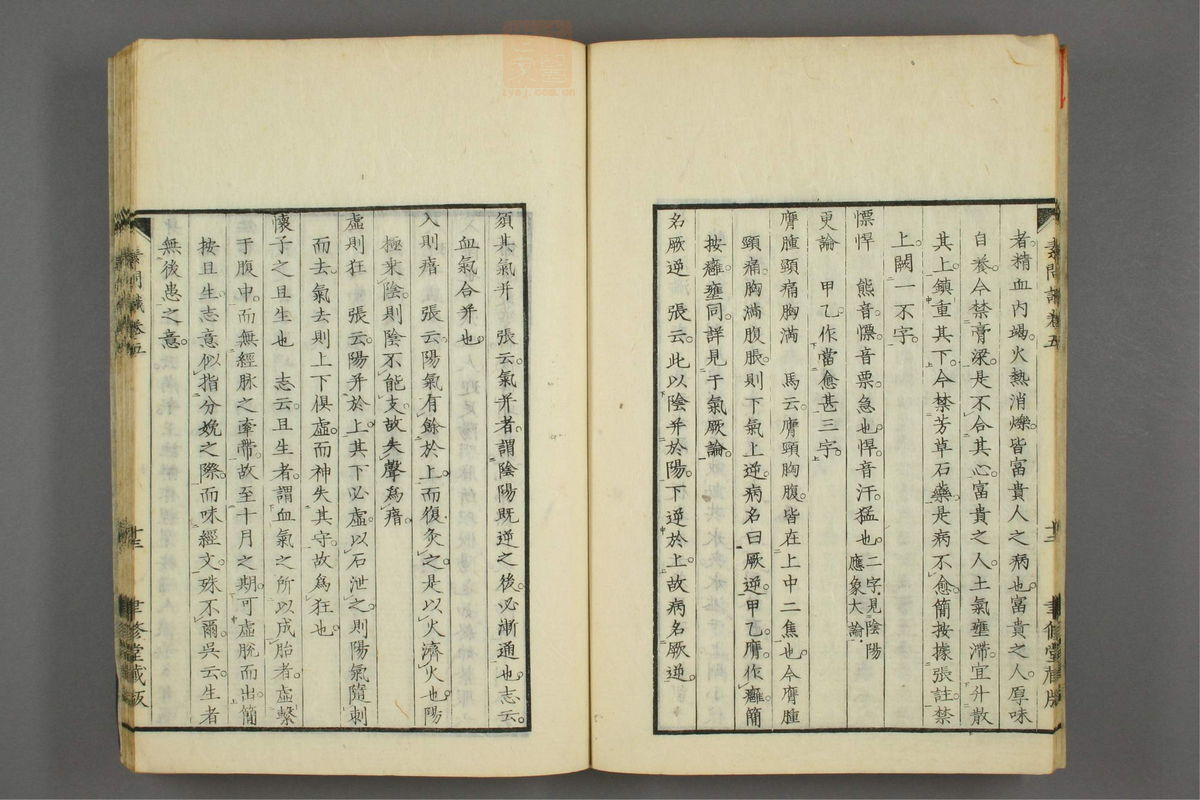 者精血內竭。火熱消爍。皆富貴人之病也。富貴之人。厚味
自養。今禁膏梁。是不合其心。富貴之人。土氣壅滯。宜升散
其上鎮重其下。今禁芳草石藥。是病不愈。簡按據張註。禁
上闕一不字。
慓悍 熊音。慓音票。急也。悍音汗。猛也。二字見陰陽應象大論。
更論 甲乙作當愈甚三字。
膺腫頸痛胸滿 馬云。膺頸胸腹。皆在上中二焦也。今膺腫
頸痛。胸滿腹脹。則下氣上逆。病名曰厥逆。甲乙。膺作癰。簡
按癰壅同。詳見于氣厥論。
名厥逆 張云。此以陰并於陽。下逆於上。故病名厥逆。
素問識卷五
十三
聿修堂藏版
須其氣并 張云。氣并者。謂陰陽既逆之後。必漸通也。志云。
血氣合并也。
入則瘖 張云。陽氣有餘於上。而復灸之。是以火濟火也。陽
極乘陰。則陰不能支。故失聲為瘖。
虛則狂 張云。陽并於上。其下必虛。以石泄之。則陽氣隨刺
而去。氣去則上下俱虛。而神失其守。故為狂也。
懷子之且生也 志云。且生者。謂血氣之所以成胎者。虛繫
于腹中。而無經脈之牽帶。故至十月之期。可虛脫而出。簡
按且生。志意似指分娩之際。而味經文。殊不爾。吳云。生者
無後患之意。
素問識卷五
十三
聿修堂藏版